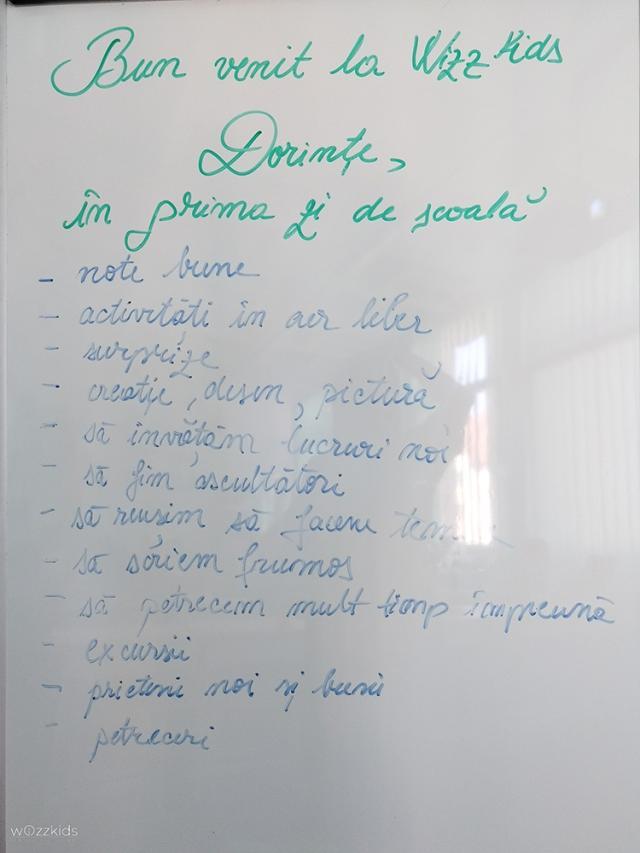 Bun venit la Wizz Kids
Dorințe,
în prima zi de școală
- note bune
- activități în aer liber
- surprize
- creație, desen, pictură
- să învățăm lucruri noi
- să fim ascultători
- să reușim să facem
- să scriem frumos
- să petrecem mult timp împreună
- excursii
- prieteni noi și buni
- petreceri
wOzzkids